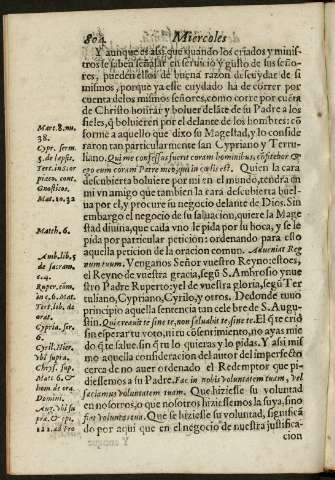 804 Miercoles
Y aunque es assi que quando los criados y minis-
tros se saben señalar en seruicio y gusto de sus seño-
res, pueden ellos de buena razon descuydar de si
mismos, porque ya esse cuydado ha de correr por
cuenta de los mismos señores, como corre por cuẽta
de Christo honrar y boluer delãte de su Padre a los
fieles, q̃ boluieren por el delante de los hombres: cõ
forme a aquello que dixo su Magestad, y lo conside
raron tan particularmente san Cypriano y Tertu-
liano, Qui me confessus fuerit coram hominibus, confitebor &
ego eum coram Patre meo, qui in cælis est. Quien la cara
descubierta boluiere por mi en el mundo, tendrá en
mi vn amigo que tambien la cara descubierta buel-
ua por el, y procure su negocio delante de Dios. Sin
embargo el negocio de su saluacion, quiere la Mage
stad diuina, que cada vno le pida por su boca, y se le
pida por particular peticion: ordenando para esso
aquella peticion de la oracion comun. Adueniat Reg
num tuum. Venganos Señor vuestro Reyno: esto es,
el Reyno de vuestra gracia, segũ S. Ambrosio y nue
stro Padre Ruperto: y el de vuestra gloria, segũ Ter
tuliano, Cypriano, Cyrilo, y otros. De donde tuuo
principio aquella sentencia tan celebre de S. Augu-
stin. Qui creauit te sine te, non saluabit te, sine te. El q̃ te crió
sin esperar tu voto, ni tu cõsentimiento, no ayas mie
do q̃ te salue. sin q̃ tu lo quieras y lo pidas. Y assi mis
mo aquella consideracion del autor del imperfecto
cerca de no auer ordenado el Redemptor que pi-
diessemos a su Padre. Fac in nobis voluntatem tuam, vel
faciamus voluntatem tuam. Que hiziesse su voluntad
en nosotros, o que nosotros hiziessemos la suya, sino
fiat voluntas tua. Que se hiziesse su voluntad, significã
do por aqui que en el negocio de nuestra justifica-
cion
Mat. 8. nu.
38.
Cypr. serm.
5. de lapsis.
Math. 6.
Amb. lib. 5
de sacram.
c. 4.
Ruper. cõm.
in c. 6. Mat.
Tert. lib. de
orat.
Cypria. ser.
6.
Cyril. Hier.
vbi supra.
Chrys. sup.
Mat. 6. &
hom. de ora.
Domini.
Aug. vbi su
pra, & epi.